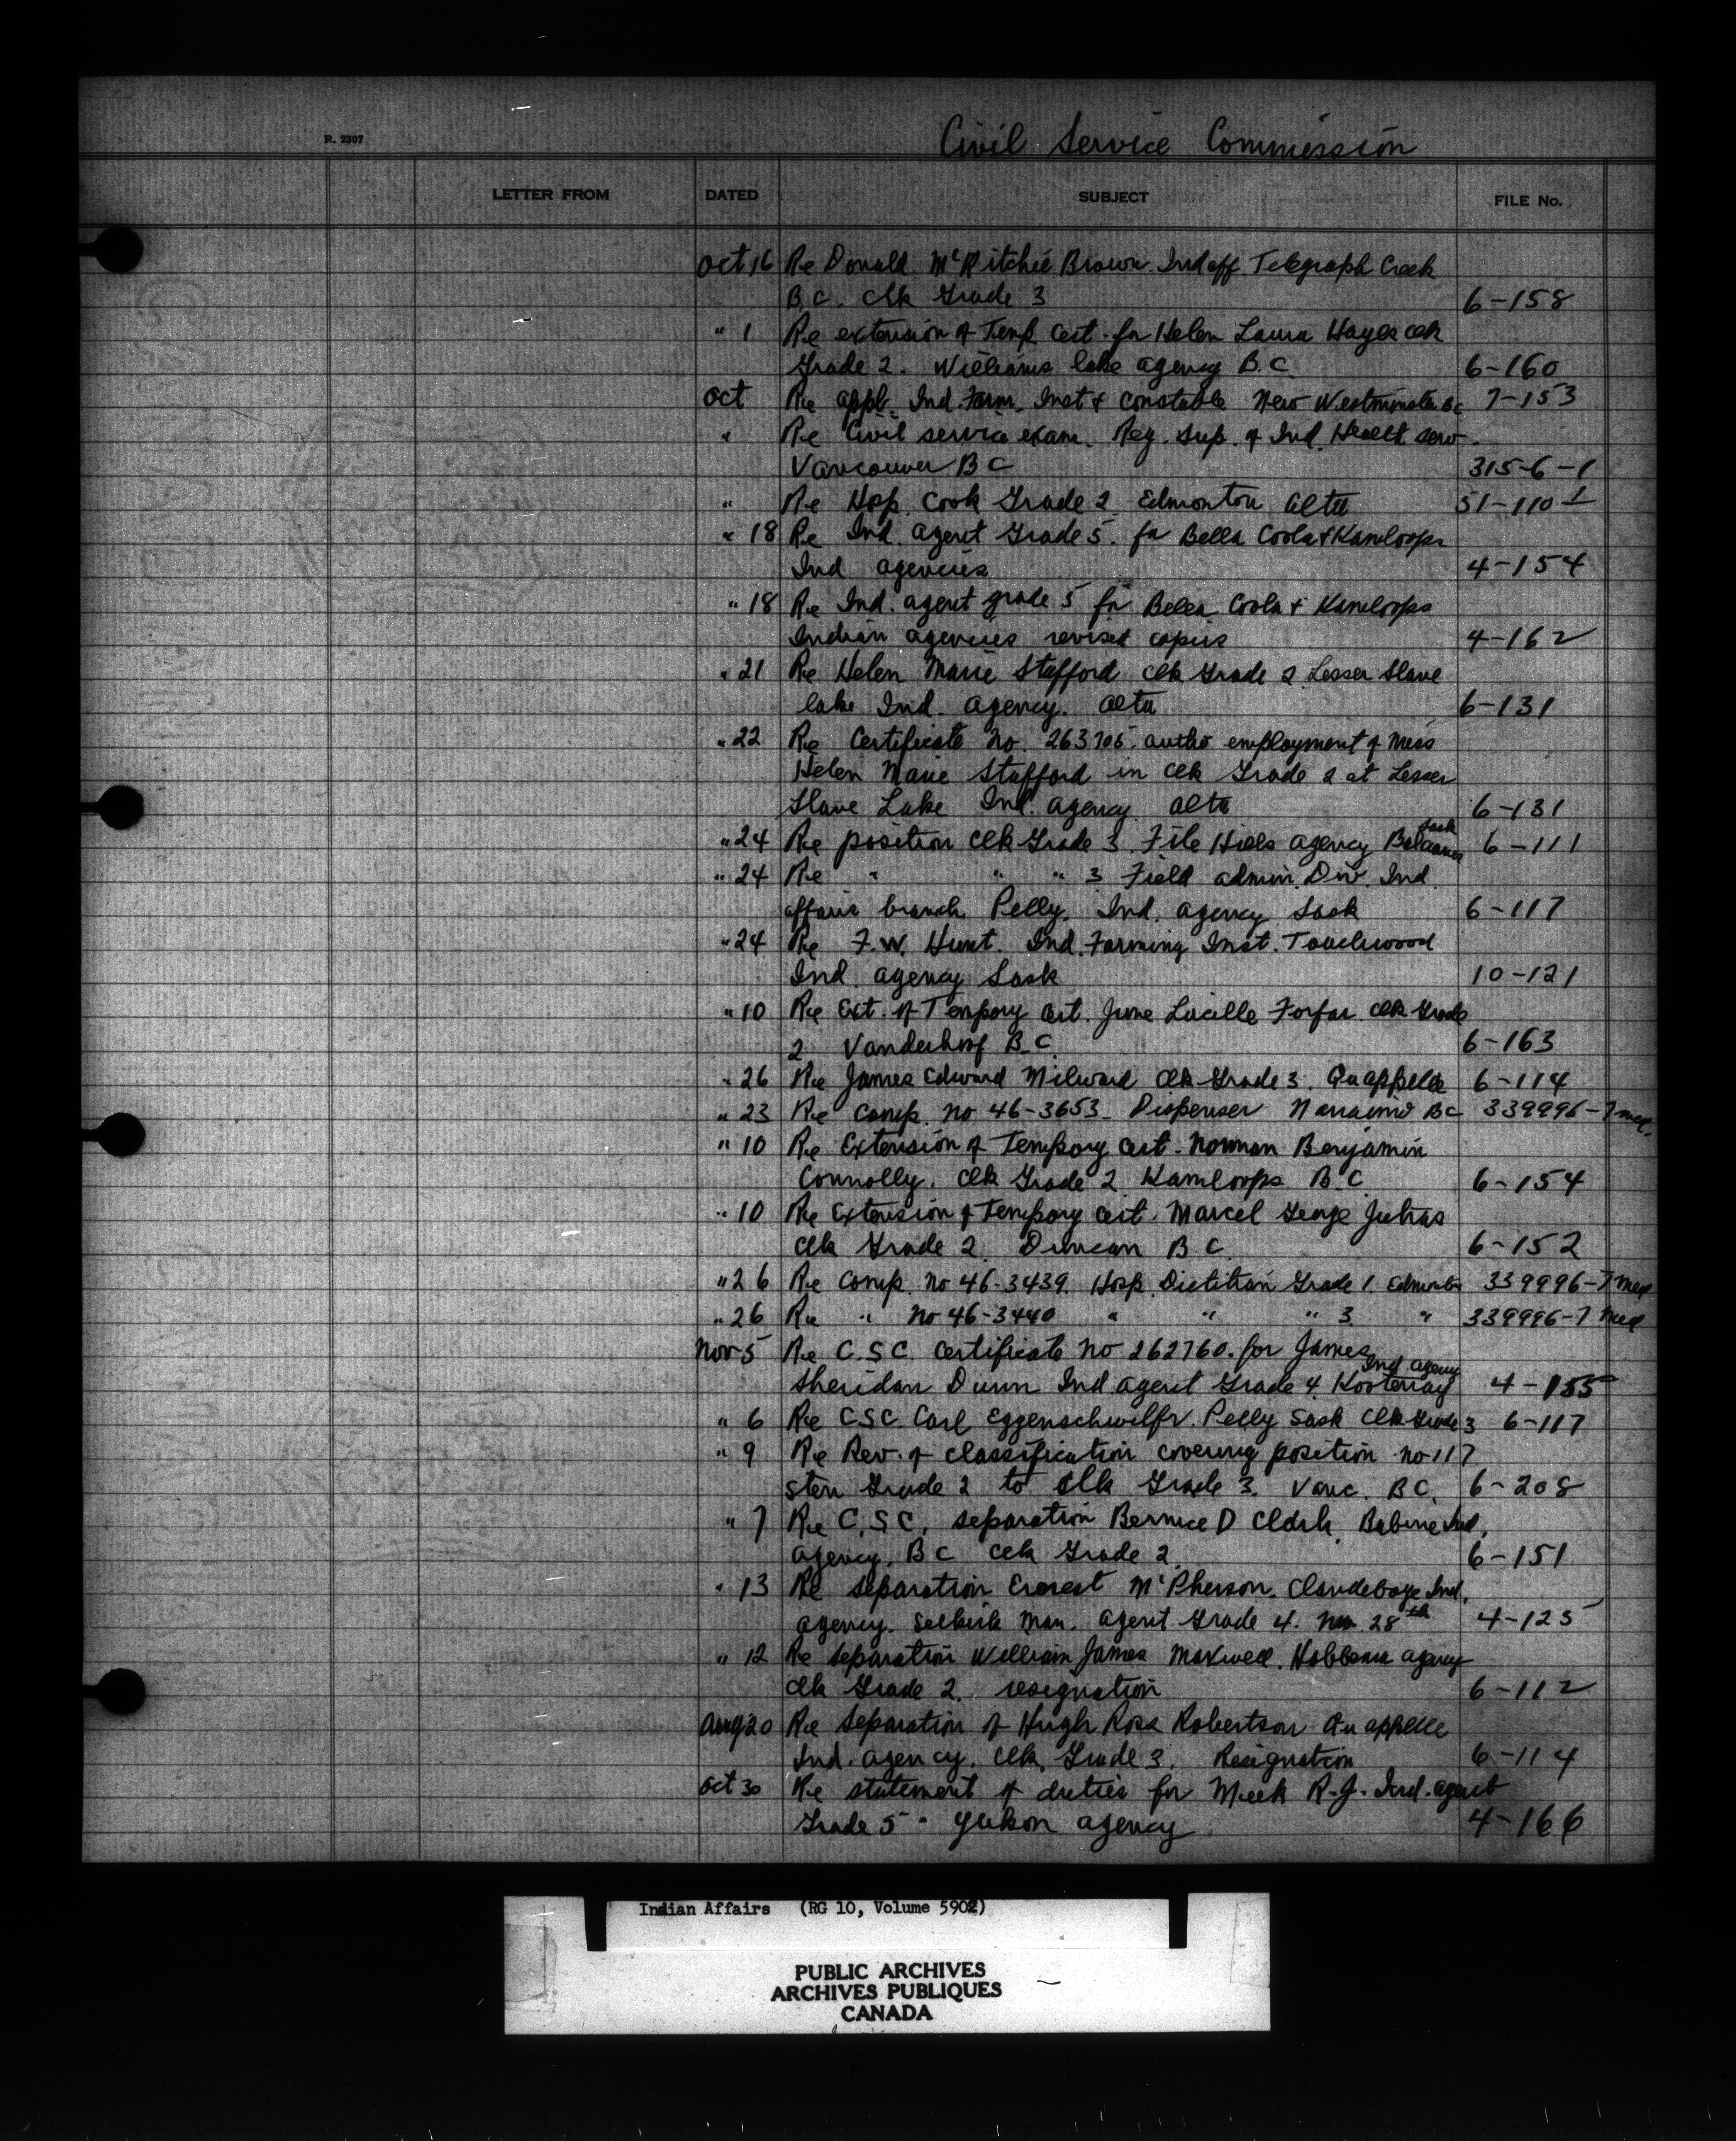 R. 2307
Civil Service Commission
LETTER FROM DATED SUBJECT FILE No.
Oct 16 Re Donald McRitchie Brown Ind off Telegraph Creek
B C. Clk Grade 3 6-158
" 1 Re extension of Temp Cert. for Helen Laura Hayes clk
Grade 2. Williams lake agency B.C. 6-160
Oct Re appl. Ind. Farm. Inst & Constable New Westminster BC 7-153
" Re Civil service exam. Reg. Sup. of Ind. Health serv.
Vancouver B C 315-6-1
" Re Hosp. Cook Grade 2 Edmonton Alta 51-110-1
" 18 Re Ind. agent Grade 5. for Bella Coola & Kamloops
Ind agencies 4-154
" 18 Re Ind. agent grade 5 for Bella Coola & Kamloops
Indian agencies revised copies 4-162
" 21 Re Helen Marie Stafford Clk Grade 2 Lesser Slave
lake Ind. Agency. Alta 6-131
" 22 Re Certificate No. 263705. autho employment of Miss
Helen Marie Stafford in Clk Grade 2 at Lesser
Slave Lake Ind. agency Alta 6-131
" 24 Re position Clk Grade 3 File Hills agency Balcarres Sask 6-111
" 24 Re " " " 3 Field admin. Div. Ind.
affairs branch Pelly. Ind. Agency Sask 6-117
" 24 Re F.W. Hunt. Ind. Farming Inst. Touchwood
Ind. agency Sask 10-121
" 10 Re Ext. of Tempory Cert. June Lucille Forfar. Clk Grade
2 Vanderhoof B.C. 6-163
" 26 Re James Edward Milward Clk Grade 3. Quappelle 6-114
" 23 Re Comp. no 46-3653 - Dispenser Nanaimo BC 339996-7 med.
" 10 Re Extension of Tempory Cert. Norman Benjamin
Connolly. Clk Grade 2 Kamloops B.C. 6-154
" 10 Re Extension of Tempory Cert. Marcel George
Clk Grade 2. Duncan B.C. 6-152
" 26 Re Comp. no 46-3439. Hosp. Dietitian Grade 1. Edmonton 339996-7 Med
" 26 Re " No 46-3440 " " " 3 " 339996-7 Med
Nov 5 Re C.S.C. Certificate no 262760. for James
Sheridan Dunn Ind agent Grade 4. Kootenay Ind. agency 4-155
" 6 Re CSC Carl Pelly Sask Clk Grade 3 6-117
" 9 Re Rev. of classification covering position no 117
Sten Grade 2 to Clk Grade 3. Vanc. B C. 6-208
" 7 Re C.S.C. separation Bernice D Clark Babine Ind.
Agency. B C Clk Grade 2. 6-151
" 13 Re separation Ernest McPherson. Clandeboye Ind.
Agency. Selkirk Man. Agent Grade 4. Nov 28th 4-125
" 12 Re Separation William James Maxwell. Hobbema agency
Clk Grade 2. resignation 6-112
Aug 20 Re Separation of Hugh Ross Robertson Quappelle
Ind. Agency. Clk. Grade 3. Resignation 6-114
Oct 30 Re statement of duties for Meek R.J. Ind. agent
Grade 5 - Yukon agency 4-166
Indian Affairs (RG 10, Volume 5902)
PUBLIC ARCHIVES
ARCHIVES PUBLIQUES
CANADA